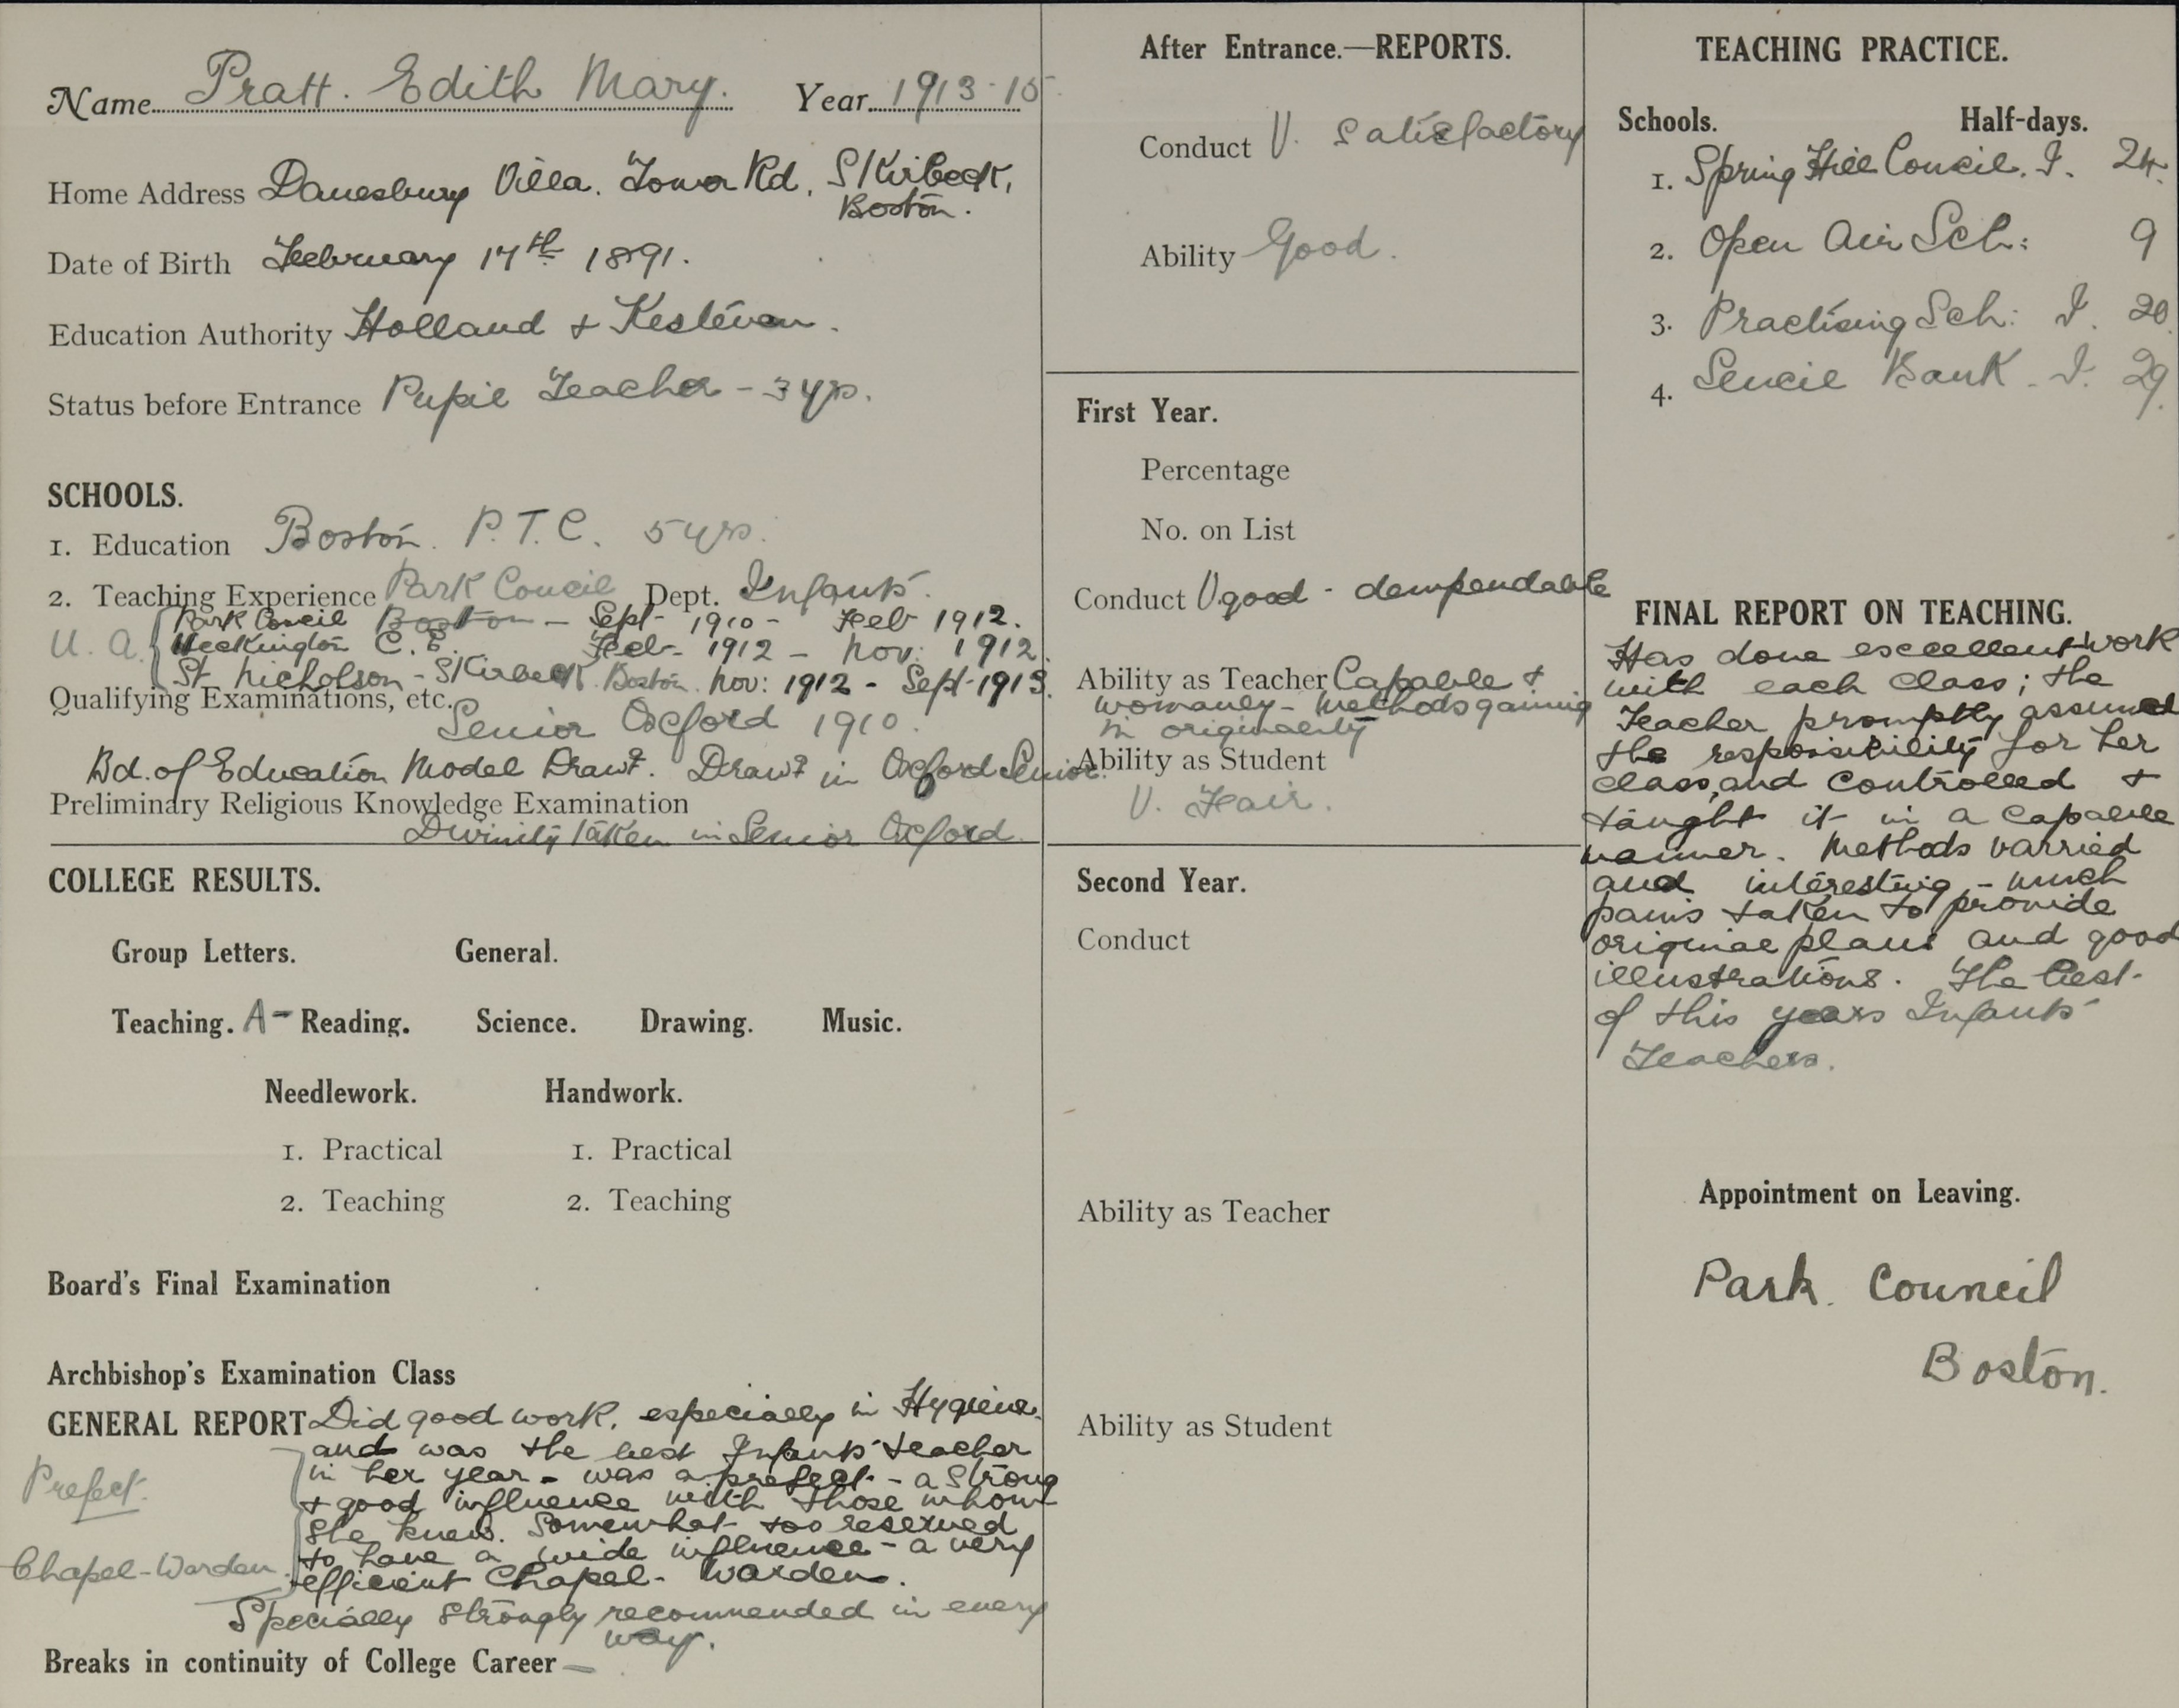 Name Pratt. Edith Mary. Year 1913-15
Home Address Danesbury Villa. Tower Rd. S/Kirbeck,
Boston.
Date of Birth February 17th 1891.
Education Authority Holland & Kesteven.
Status before Entrance Pupil Teacher - 3 yrs.
SCHOOLS.
1. Education Boston. P.T.C. 5 yrs.
2. Teaching Experience Park Council Dept. Infants.
U. A. Park Council Boston - Sept- 1910 - Feb 1912.
Heckington C. E. Feb- 1912 - Nov: 1912.
St Nicholson - S/Kirbeck. Boston. Nov: 1912 - Sept-1913.
Qualifying Examinations, etc.
Senior Oxford 1910.
Bd. of Education Model Drawg. Drawg in Oxford Senior.
Preliminary Religious Knowledge Examination
Divinity taken in Senior Oxford.
COLLEGE RESULTS.
Group Letters. General.
Teaching. A- Reading. Science. Drawing. Music.
Needlework. Handwork.
1. Practical 1. Practical
2. Teaching 2. Teaching
Board's Final Examination
Archbishop's Examination Class
GENERAL REPORT Did good work, especially in Hygiene.
and was the best Infants' teacher
in her year - was a prefect - a strong
Prefect.
& good influence with those whom
she knew. Somewhat too reserved
to have a wide influence - a very
Chapel-Warden.
efficient Chapel-Warden.
Specially strongly recommended in every
way.
Breaks in continuity of College Career —
After Entrance.—REPORTS.
Conduct V. Satisfactory
Ability Good.
First Year.
Percentage
No. on List
Conduct V.good - dempendable
Ability as Teacher Capable &
womanly - Methods gaining
in originality
Ability as Student
V. Fair.
Second Year.
Conduct
Ability as Teacher
Ability as Student
TEACHING PRACTICE.
Schools. Half-days.
1. Spring Hill Council. I. 24.
2. Open Air Sch: 9
3. Practising Sch: I. 20.
4. Sencil Bank - I. 29.
FINAL REPORT ON TEACHING.
Has done excellent work
with each class; the
Teacher promptly assumed
the responsibility for her
class, and controlled &
taught it in a capable
manner. Methods varried
and interesting, - much
pains taken to provide
original plans and good
illustrations. The best
of this years Infants'
Teachers.
Appointment on Leaving.
Park. Council
Boston.